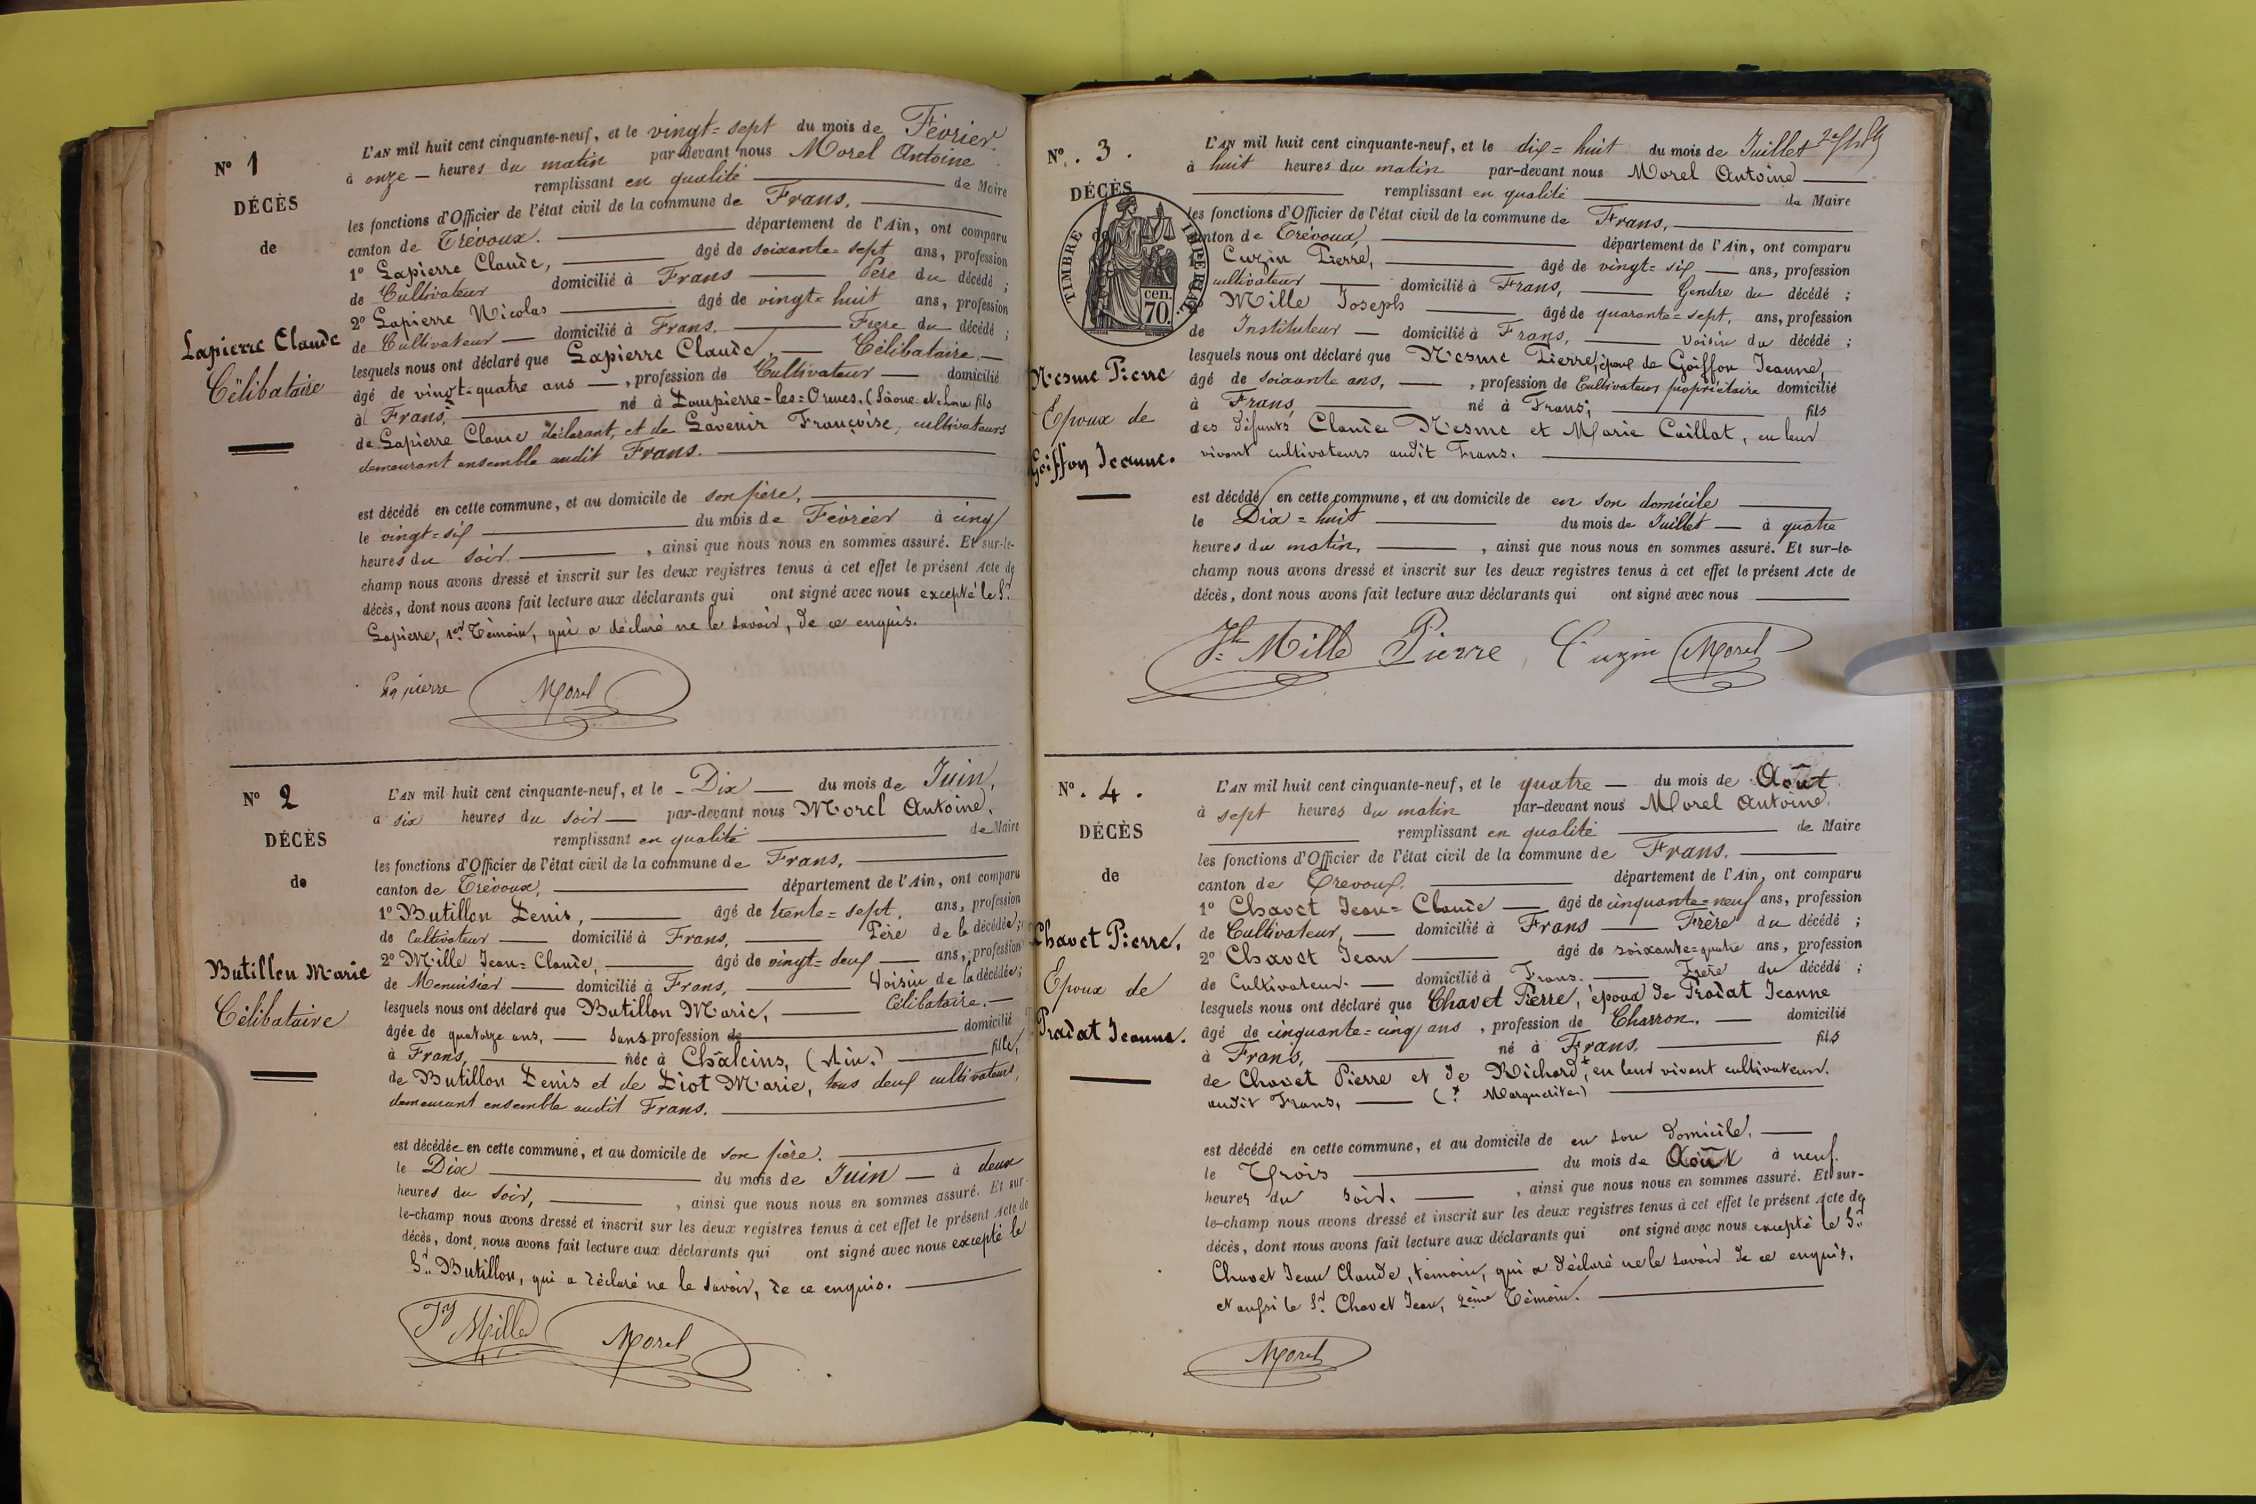 Nº 1
DÉCÈS
de
Lapierre Claude
Célibataire
L'AN mil huit cent cinquante-neuf, et le vingt=sept du mois de Février.
à onze — heures du matin par-devant nous Morel Antoine
remplissant en qualité de Maire
les fonctions d'Officier de l'état civil de la commune de Frans,
canton de Trévoux. département de l'Ain, ont comparu
1º Lapierre Claude, âgé de soixante=sept ans, profession
de Cultivateur domicilié à Frans Père du décédé ;
2º Lapierre Nicolas âgé de vingt=huit ans, profession
de Cultivateur — domicilié à Frans. Frère du décédé ;
lesquels nous ont déclaré que Lapierre Claude, — Célibataire. —
âgé de vingt-quatre ans —, profession de Cultivateur — domicilié
à Frans, né à (Saône-et-Loire fils
de Lapierre Claude déclarant, et de Lavenir Françoise, cultivateurs
demeurant ensemble audit Frans.
est décédé en cette commune, et au domicile de son père,
le vingt=six du mois de Février à cinq
heures du soir , ainsi que nous nous en sommes assuré. Et sur-le-
champ nous avons dressé et inscrit sur les deux registres tenus à cet effet le présent Acte de
décès, dont nous avons fait lecture aux déclarants qui ont signé avec nous excepté le Sr.
Lapierre, 1er Témoin, qui a déclaré ne le savoir, de ce enquis.
Lapierre Morel
Nº 2
DÉCÈS
de
Butillon Marie
Célibataire
L'AN mil huit cent cinquante-neuf, et le - Dix — du mois de Juin,
à six heures du soir — par-devant nous Morel Antoine,
remplissant en qualité de Maire
les fonctions d'Officier de l'état civil de la commune de Frans,
canton de Trévoux, département de l'Ain, ont comparu
1º Butillon Denis, âgé de trente=sept, ans, profession
de Cultivateur — domicilié à Frans, Père de la décédée ;
2º Mille Jean=Claude, âgé de vingt=deux — ans, profession
de Menuisier — domicilié à Frans, Voisin de la décédée ;
lesquels nous ont déclaré que Butillon Marie, Célibataire. —
âgée de quatorze ans, — sans profession de domicilié
à Frans, née à Chaleins, (Ain.) fille,
de Butillon Denis et de Diot Marie, tous deux cultivateurs,
demeurant ensemble audit Frans.
est décédée en cette commune, et au domicile de son père.
le Dix du mois de Juin — à deux
heures du soir, , ainsi que nous nous en sommes assuré. Et sur-
le-champ nous avons dressé et inscrit sur les deux registres tenus à cet effet le présent Acte de
décès, dont nous avons fait lecture aux déclarants qui ont signé avec nous excepté le
Sr. Butillon, qui a déclaré ne le savoir, de ce enquis.
Mille Morel
Nº. 3.
DÉCÈS
de
TIMBRE IMPÉRIAL
cen.
70
Mesme Pierre
Epoux de
Goiffon Jeanne.
L'AN mil huit cent cinquante-neuf, et le dix=huit du mois de Juillet
à huit heures du matin par-devant nous Morel Antoine
remplissant en qualité de Maire
les fonctions d'Officier de l'état civil de la commune de Frans,
canton de Trévoux, département de l'Ain, ont comparu
Cuzin Pierre, âgé de vingt=six — ans, profession
cultivateur domicilié à Frans, Gendre du décédé ;
Mille Joseph âgé de quarante=sept, ans, profession
de Instituteur — domicilié à Frans, Voisin du décédé ;
lesquels nous ont déclaré que Mesme Pierre, époux de Goiffon Jeanne,
âgé de soixante ans, — , profession de Cultivateur propriétaire domicilié
à Frans, né à Frans, fils
des défunts Claude Mesme et Marie Caillat, en leur
vivant cultivateurs audit Frans.
est décédé en cette commune, et au domicile de en son domicile
le Dix=huit du mois de Juillet — à quatre
heures du matin, , ainsi que nous nous en sommes assuré. Et sur-le-
champ nous avons dressé et inscrit sur les deux registres tenus à cet effet le présent Acte de
décès, dont nous avons fait lecture aux déclarants qui ont signé avec nous
Jh Mille Pierre Cuzin Morel
Nº. 4.
DÉCÈS
de
Chavet Pierre,
Epoux de
Pradat Jeanne.
L'AN mil huit cent cinquante-neuf, et le quatre — du mois de Août
à sept heures du matin par-devant nous Morel Antoine,
remplissant en qualité de Maire
les fonctions d'Officier de l'état civil de la commune de Frans.
canton de Trévoux. département de l'Ain, ont comparu
1º Chavet Jean=Claude — âgé de cinquante=neuf ans, profession
de Cultivateur, — domicilié à Frans — Frère du décédé ;
2º Chavet Jean âgé de soixante=quatre ans, profession
de Cultivateur. — domicilié à Frans. — Frère du décédé ;
lesquels nous ont déclaré que Chavet Pierre, époux de Pradat Jeanne
âgé de cinquante=cinq ans , profession de Charron. — domicilié
à Frans, né à Frans, fils
de Chavet Pierre et de Richard +, en leur vivant cultivateurs.
audit Frans, — (+ Marguerite)
est décédé en cette commune, et au domicile de en son domicile. —
le Trois du mois de Août à neuf.
heures du soir. , ainsi que nous nous en sommes assuré. Et sur-
le-champ nous avons dressé et inscrit sur les deux registres tenus à cet effet le présent Acte de
décès, dont nous avons fait lecture aux déclarants qui ont signé avec nous excepté le Sr.
Chavet Jean Claude, témoin, qui a déclaré ne le savoir de ce enquis,
et aussi le Sr. Chavet Jean, 2ème Témoin.
Morel